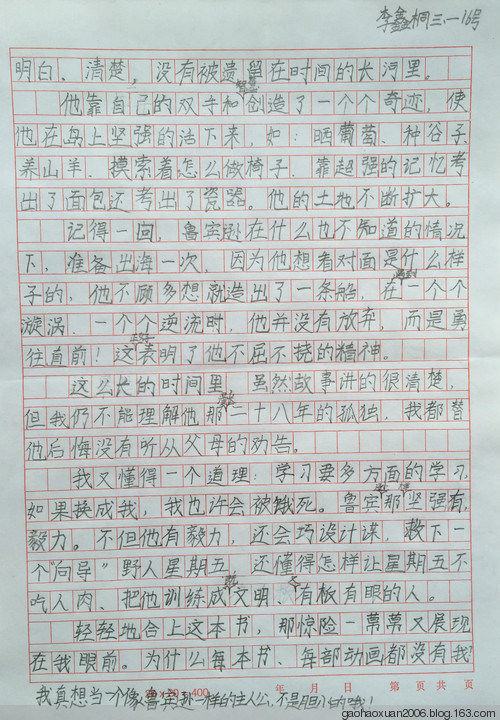 李鑫桐 三、一 16号
明白、清楚,没有被遗留在时间的长河里。
他靠自己的双手和智慧创造了一个个奇迹,使
他在岛上坚强的活下来,如:晒葡萄、种谷子、
养山羊、摸索着怎么做椅子、靠超强的记忆考
出了面包还考出了瓷器。他的土地不断扩大。
记得一回,鲁宾逊在什么也不知道的情况
下,准备出海一次,因为他想看对面是什么样
子的,他不顾多想就造出了一条船,在遇到一个个
漩涡,一个个逆流时,他并没有放弃,而是勇
往直前!这表明了他不屈不挠的精神。
这么长的时间里,虽然故事讲的很清楚,
但我们不能理解他那二十八年的孤独,我都替
他后悔没有听从父母的劝告。
我又懂得一个道理:学习要多方面的学习,
如果换成我,我也许会被饿死。鲁宾那坚强有
毅力。不但他有毅力,还会巧设计谋,救下一
个“向导”野人星期五,还懂得怎样让星期五不
吃人肉、把他训练成文明、有板有眼的人。
轻轻地合上这本书,那惊险一幕幕又展现
在我眼前。为什么每本书、每部动画都没有我?
20×20=400 年 月 日 第 页 共 页
我真想当一个像鲁宾逊一样的主人公,不是胆小的哦!
gaohaoxuan2006.blog.163.com